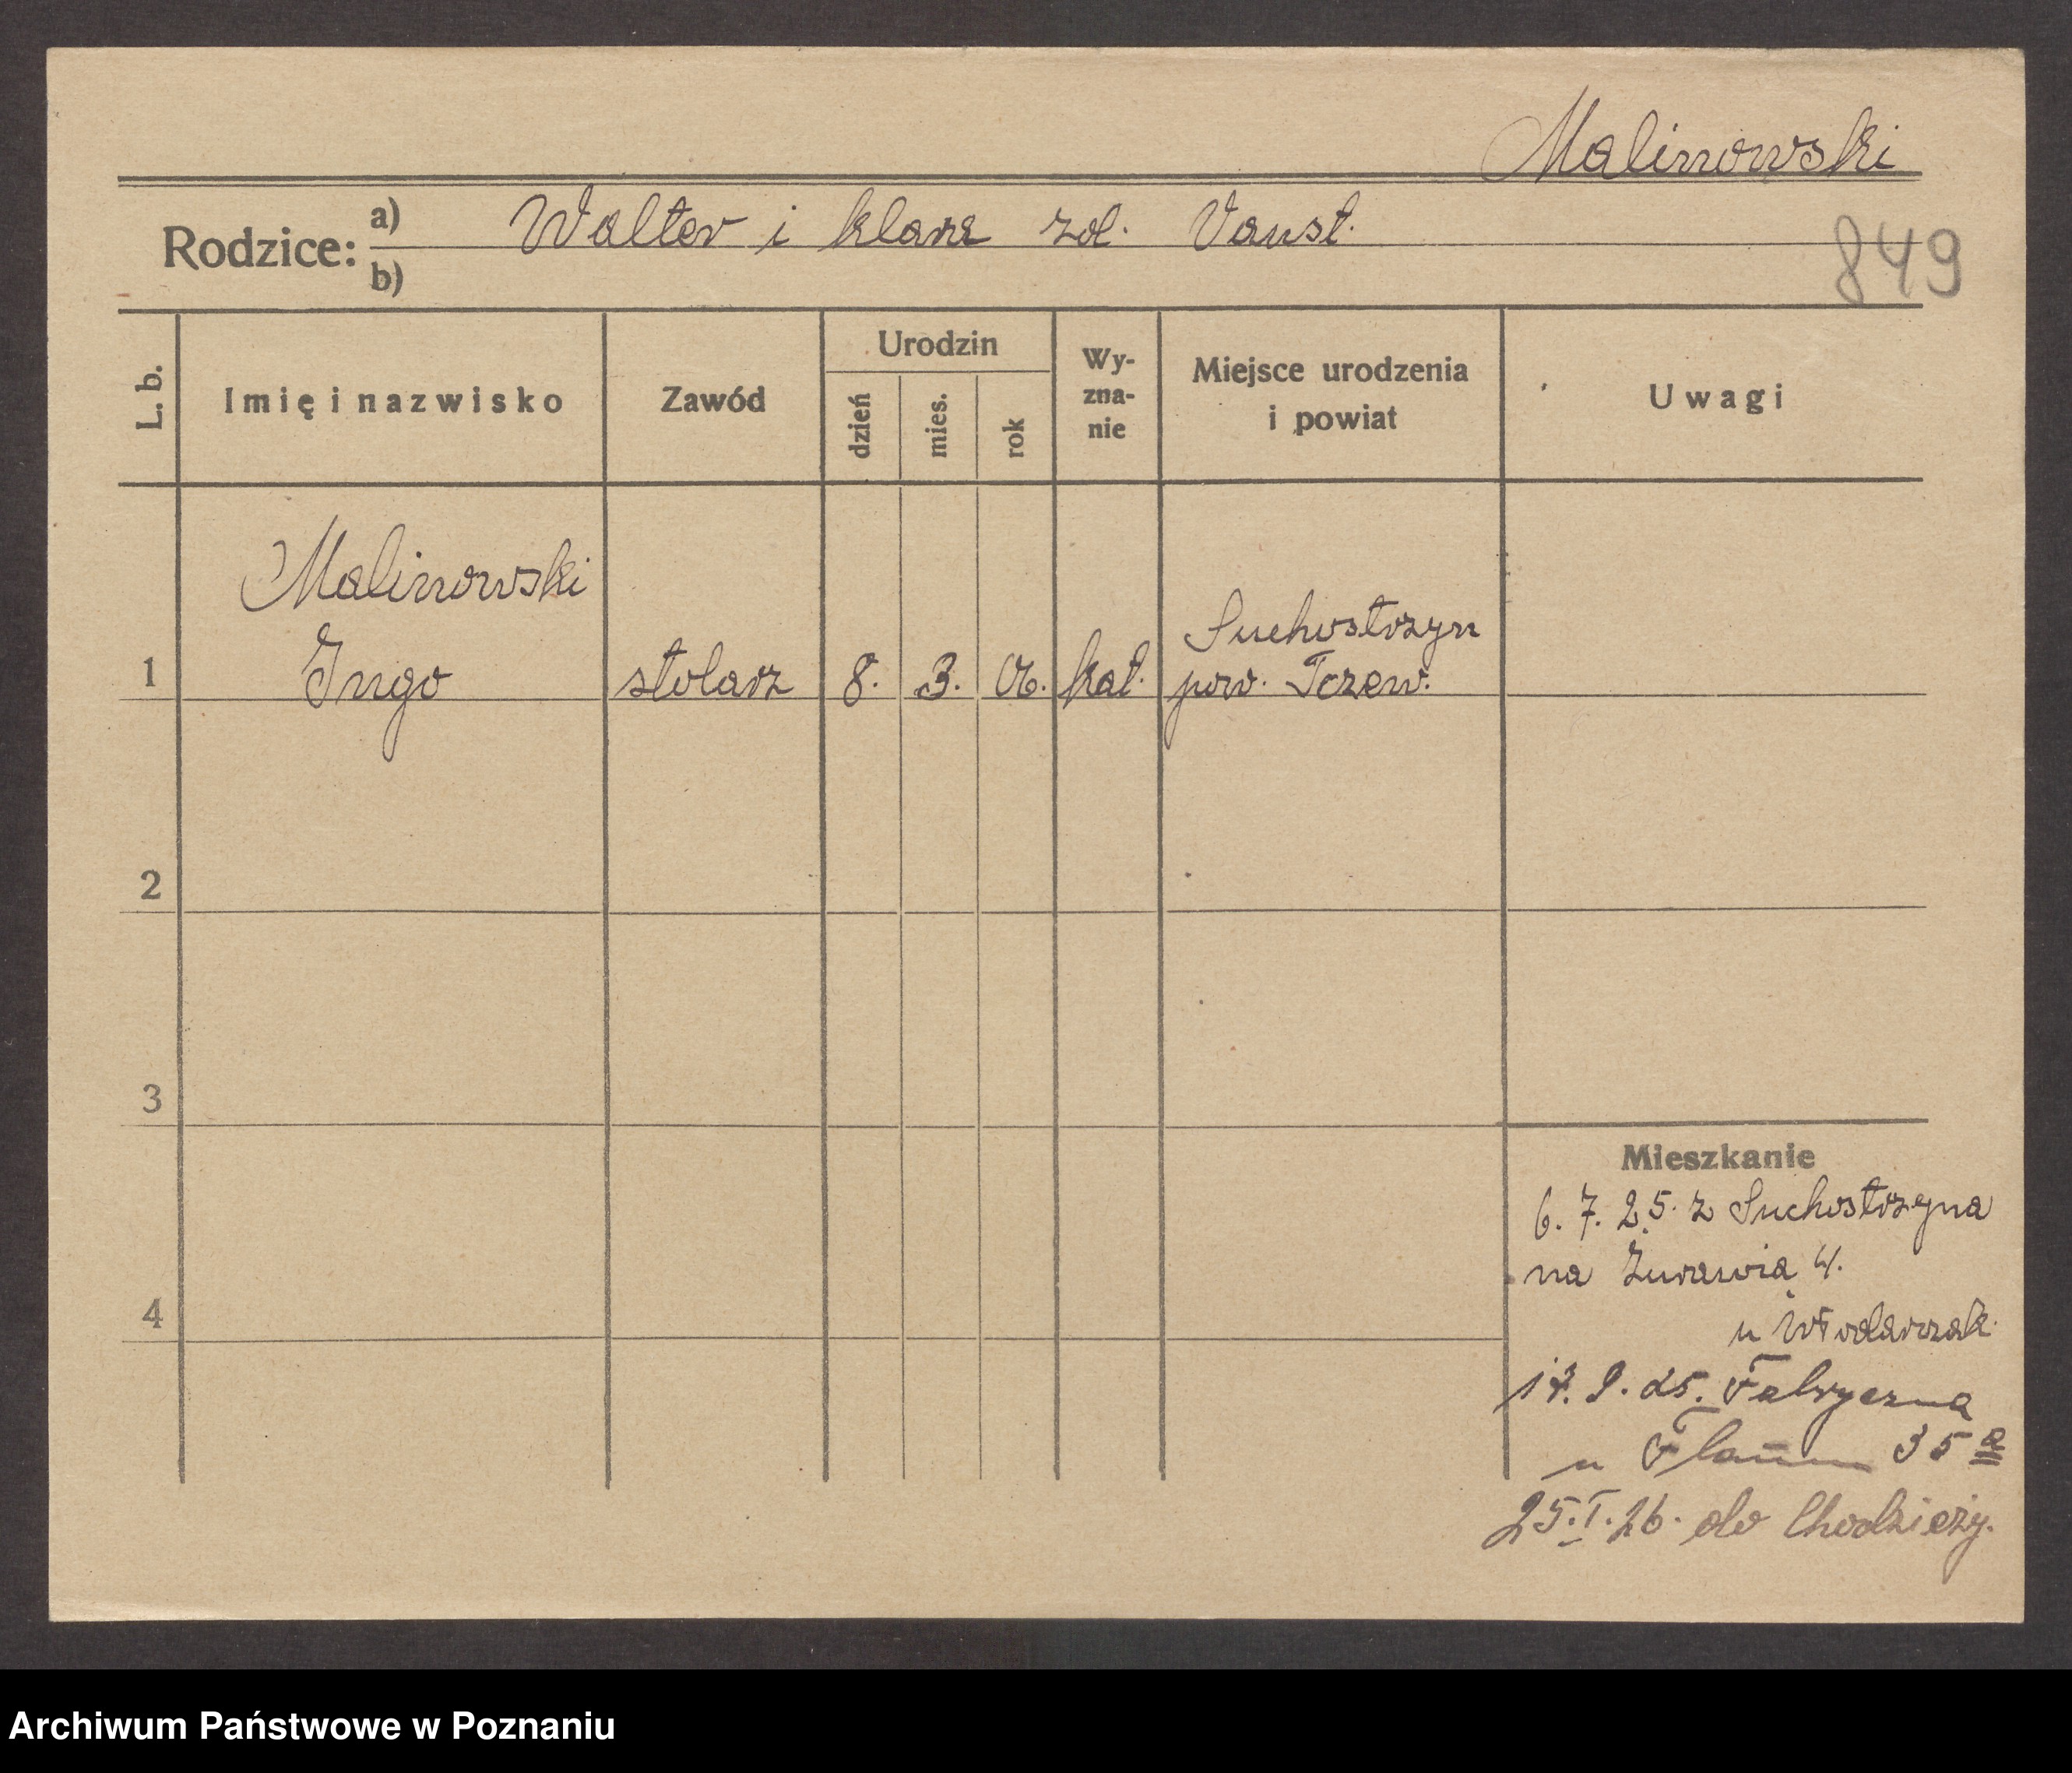 Malinowski
Rodzice: a) Walter i Klara zd. Vanst.
b)
849
L. b.
Imię i nazwisko
Zawód
Urodzin
dzień
mies.
rok
Wy-
zna-
nie
Miejsce urodzenia
i powiat
Uwagi
Malinowski
Suchostrzyn
1 Ingo stolarz 8. 3. 06. kat. pow. Tczew.
2
3
4
Mieszkanie
6. 7. 25. z Suchostrzyna
na Żurawia 4.
u Włodarzak
9. 25. Fabryczna
u 35 a
25. I. 26. do Chodzieży.
Archiwum Państwowe w Poznaniu